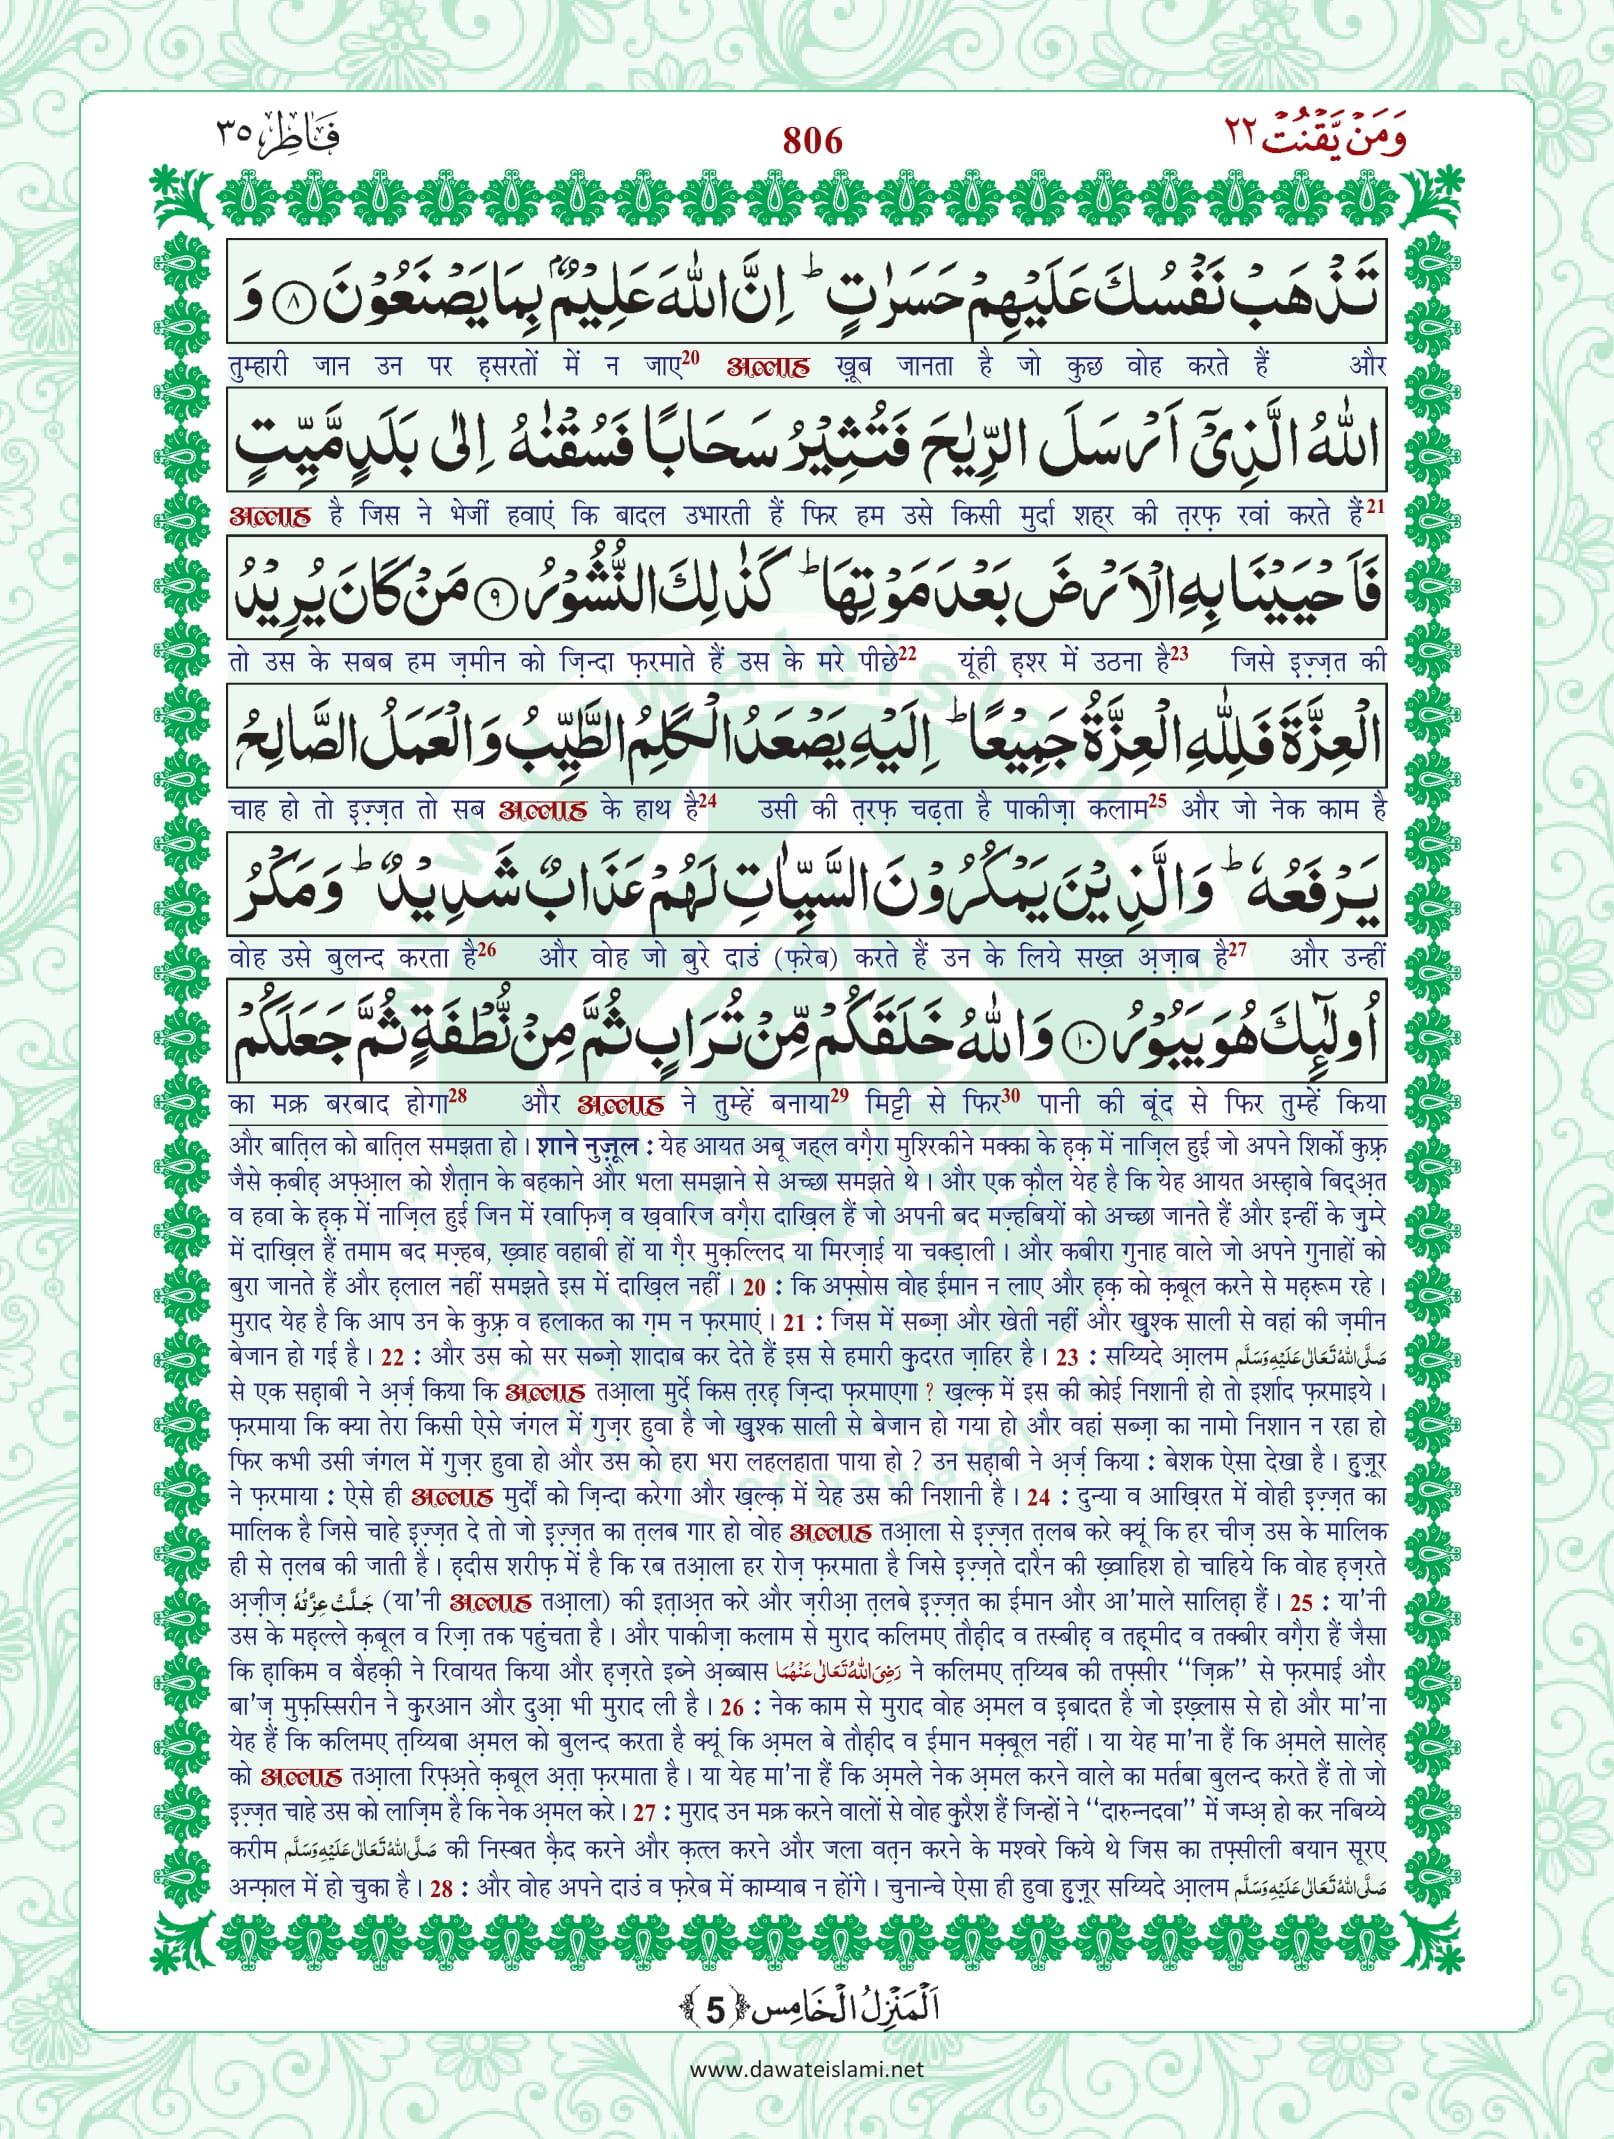 وَمَنْ يَّقْنُتْ ٢٢ 806 فَاطِر ٣٥
تَذْهَبْ نَفْسُكَ عَلَيْهِمْ حَسَرٰتٍ ؕ اِنَّ اللّٰهَ عَلِيْمٌۢ بِمَا يَصْنَعُوْنَ ﴿۸﴾ وَ
तुम्हारी जान उन पर ह़सरतों में न जाए20 अल्लाह ख़ूब जानता है जो कुछ वोह करते हैं और
اللّٰهُ الَّذِيْۤ اَرْسَلَ الرِّيٰحَ فَتُثِيْرُ سَحَابًا فَسُقْنٰهُ اِلٰى بَلَدٍ مَّيِّتٍ
अल्लाह है जिस ने भेजीं हवाएं कि बादल उभारती हैं फिर हम उसे किसी मुर्दा शहर की त़रफ़ रवां करते हैं21
فَاَحْيَيْنَا بِهِ الْاَرْضَ بَعْدَ مَوْتِهَا ؕ كَذٰلِكَ النُّشُوْرُ ﴿۹﴾ مَنْ كَانَ يُرِيْدُ
तो उस के सबब हम ज़मीन को ज़िन्दा फ़रमाते हैं उस के मरे पीछे22 यूंही ह़श्र में उठना है23 जिसे इ़ज़्ज़त की
الْعِزَّةَ فَلِلّٰهِ الْعِزَّةُ جَمِيْعًا ؕ اِلَيْهِ يَصْعَدُ الْكَلِمُ الطَّيِّبُ وَ الْعَمَلُ الصَّالِحُ
चाह हो तो इ़ज़्ज़त तो सब अल्लाह के हाथ है24 उसी की त़रफ़ चढ़ता है पाकीज़ा कलाम25 और जो नेक काम है
يَرْفَعُهٗ ؕ وَ الَّذِيْنَ يَمْكُرُوْنَ السَّيِّاٰتِ لَهُمْ عَذَابٌ شَدِيْدٌ ؕ وَ مَكْرُ
वोह उसे बुलन्द करता है26 और वोह जो बुरे दाउं (फ़रेब) करते हैं उन के लिये सख़्त अ़ज़ाब है27 और उन्हीं
اُولٰٓئِكَ هُوَ يَبُوْرُ ﴿۱۰﴾ وَ اللّٰهُ خَلَقَكُمْ مِّنْ تُرَابٍ ثُمَّ مِنْ نُّطْفَةٍ ثُمَّ جَعَلَكُمْ
का मक्र बरबाद होगा28 और अल्लाह ने तुम्हें बनाया29 मिट्टी से फिर30 पानी की बूंद से फिर तुम्हें किया
और बात़िल को बात़िल समझता हो। शाने नुज़ूल : येह आयत अबू जह्ल वग़ैरा मुश्रिकीने मक्का के ह़क़ में नाज़िल हुई जो अपने शिर्को कुफ़्र
जैसे क़बीह़ अफ़्आ़ल को शैत़ान के बहकाने और भला समझाने से अच्छा समझते थे। और एक क़ौल येह है कि येह आयत अस्ह़ाबे बिद्अ़त
व हवा के ह़क़ में नाज़िल हुई जिन में रवाफ़िज़ व ख़वारिज वग़ैरा दाख़िल हैं जो अपनी बद मज़्हबियों को अच्छा जानते हैं और इन्हीं के ज़ुम्रे
में दाख़िल हैं तमाम बद मज़्हब, ख़्वाह वहाबी हों या ग़ैर मुक़ल्लिद या मिरज़ाई या चक्ड़ाली। और कबीरा गुनाह वाले जो अपने गुनाहों को
बुरा जानते हैं और ह़लाल नहीं समझते इस में दाख़िल नहीं। 20 : कि अफ़्सोस वोह ईमान न लाए और ह़क़ को क़बूल करने से मह़रूम रहे।
मुराद येह है कि आप उन के कुफ़्र व हलाकत का ग़म न फ़रमाएं। 21 : जिस में सब्ज़ा और खेती नहीं और ख़ुश्क साली से वहां की ज़मीन
बेजान हो गई है। 22 : और उस को सर सब्ज़ो शादाब कर देते हैं इस से हमारी कु़दरत ज़ाहिर है। 23 : सय्यिदे आ़लम صَلَّى اللّٰهُ تَعَالٰى عَلَيْهِ وَسَلَّم
से एक सह़ाबी ने अ़र्ज़ किया कि अल्लाह तआ़ला मुर्दे किस त़रह़ ज़िन्दा फ़रमाएगा ? ख़ल्क़ में इस की कोई निशानी हो तो इर्शाद फ़रमाइये।
फ़रमाया कि क्या तेरा किसी ऐसे जंगल में गुज़र हुवा है जो ख़ुश्क साली से बेजान हो गया हो और वहां सब्ज़ा का नामो निशान न रहा हो
फिर कभी उसी जंगल में गुज़र हुवा हो और उस को हरा भरा लहलहाता पाया हो ? उन सह़ाबी ने अ़र्ज़ किया : बेशक ऐसा देखा है। हु़ज़ूर
ने फ़रमाया : ऐसे ही अल्लाह मुर्दों को ज़िन्दा करेगा और ख़ल्क़ में येह उस की निशानी है। 24 : दुन्या व आख़िरत में वोही इ़ज़्ज़त का
मालिक है जिसे चाहे इ़ज़्ज़त दे तो जो इ़ज़्ज़त का त़लब गार हो वोह अल्लाह तआ़ला से इ़ज़्ज़त त़लब करे क्यूं कि हर चीज़ उस के मालिक
ही से त़लब की जाती है। ह़दीस शरीफ़ में है कि रब तआ़ला हर रोज़ फ़रमाता है जिसे इ़ज़्ज़ते दारैन की ख़्वाहिश हो चाहिये कि वोह ह़ज़रते
अ़ज़ीज़ جَلَّتْ عِزَّتُهٗ (या'नी अल्लाह तआ़ला) की इत़ाअ़त करे और ज़रीआ़ त़लबे इ़ज़्ज़त का ईमान और आ'माले सालिह़ा हैं। 25 : या'नी
उस के मह़ल्ले क़बूल व रिज़ा तक पहुंचता है। और पाकीज़ा कलाम से मुराद कलिमए तौह़ीद व तस्बीह़ व तह़मीद व तक्बीर वग़ैरा हैं जैसा
कि ह़ाकिम व बैहक़ी ने रिवायत किया और ह़ज़रते इब्ने अ़ब्बास رَضِىَ اللّٰهُ تَعَالٰى عَنْهُمَا ने कलिमए त़य्यिब की तफ़्सीर ‘‘ज़िक्र’’ से फ़रमाई और
बा'ज़ मुफ़स्सिरीन ने कु़रआन और दुआ़ भी मुराद ली है। 26 : नेक काम से मुराद वोह अ़मल व इ़बादत है जो इख़्लास से हो और मा'ना
येह हैं कि कलिमए त़य्यिबा अ़मल को बुलन्द करता है क्यूं कि अ़मल बे तौह़ीद व ईमान मक़्बूल नहीं। या येह मा'ना हैं कि अ़मले सालेह़
को अल्लाह तआ़ला रिफ़्अ़ते क़बूल अ़त़ा फ़रमाता है। या येह मा'ना हैं कि अ़मले नेक अ़मल करने वाले का मर्तबा बुलन्द करते हैं तो जो
इ़ज़्ज़त चाहे उस को लाज़िम है कि नेक अ़मल करे। 27 : मुराद उन मक्र करने वालों से वोह कु़रैश हैं जिन्हों ने ‘‘दारुन्नदवा’’ में जम्अ़ हो कर नबिय्ये
करीम صَلَّى اللّٰهُ تَعَالٰى عَلَيْهِ وَسَلَّم की निस्बत क़ैद करने और क़त्ल करने और जला वत़न करने के मश्वरे किये थे जिस का तफ़्सीली बयान सूरए
अन्फ़ाल में हो चुका है। 28 : और वोह अपने दाउं व फ़रेब में काम्याब न होंगे। चुनान्चे ऐसा ही हुवा हु़ज़ूर सय्यिदे आ़लम صَلَّى اللّٰهُ تَعَالٰى عَلَيْهِ وَسَلَّم
اَلْمَنْزِلُ الْخَامِس ﴿5﴾
www.dawateislami.net